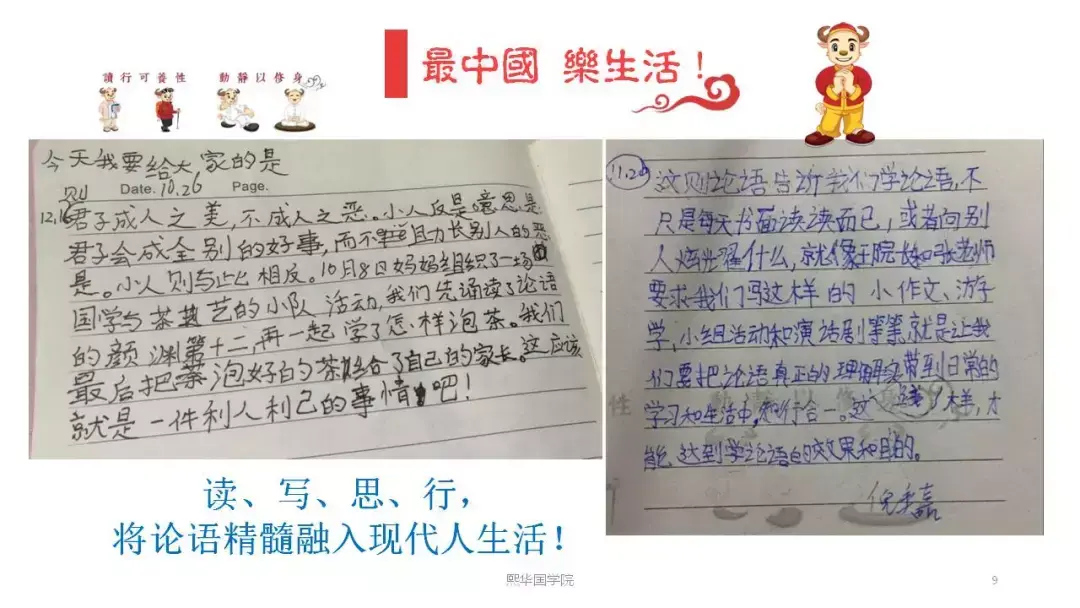 最中國 樂生活！
讀行可養性 動靜以修身
今天我要给大家的是
则 Date. 10.26 Page.
12.16 君子成人之美，不成人之恶。小人反是意思是
君子会成全别的好事，而不 且力长别人的恶
是。小人则与此相反。10月8日妈妈组织了一场
国学与茶艺的小队活动，我们先诵读了论语
的颜渊第十二，再一起学了怎样泡茶。我们
最后把泡好的茶给了自己的家长。这应该
就是一件利人利己的事情吧！
11.26 这则论语告诉我们学论语，不
只是每天书面读读而已，或者向别
人炫耀什么，就像王院长和张老师
要求我们写这样的小作文、游学
学，小组活动和演话剧等等，就是让我
们要把论语真正的理解 带到日常的
学习和生活中，知行合一。这样，才
能达到学论语的效果和目的。
读、写、思、行，
将论语精髓融入现代人生活！
熙华国学院
9